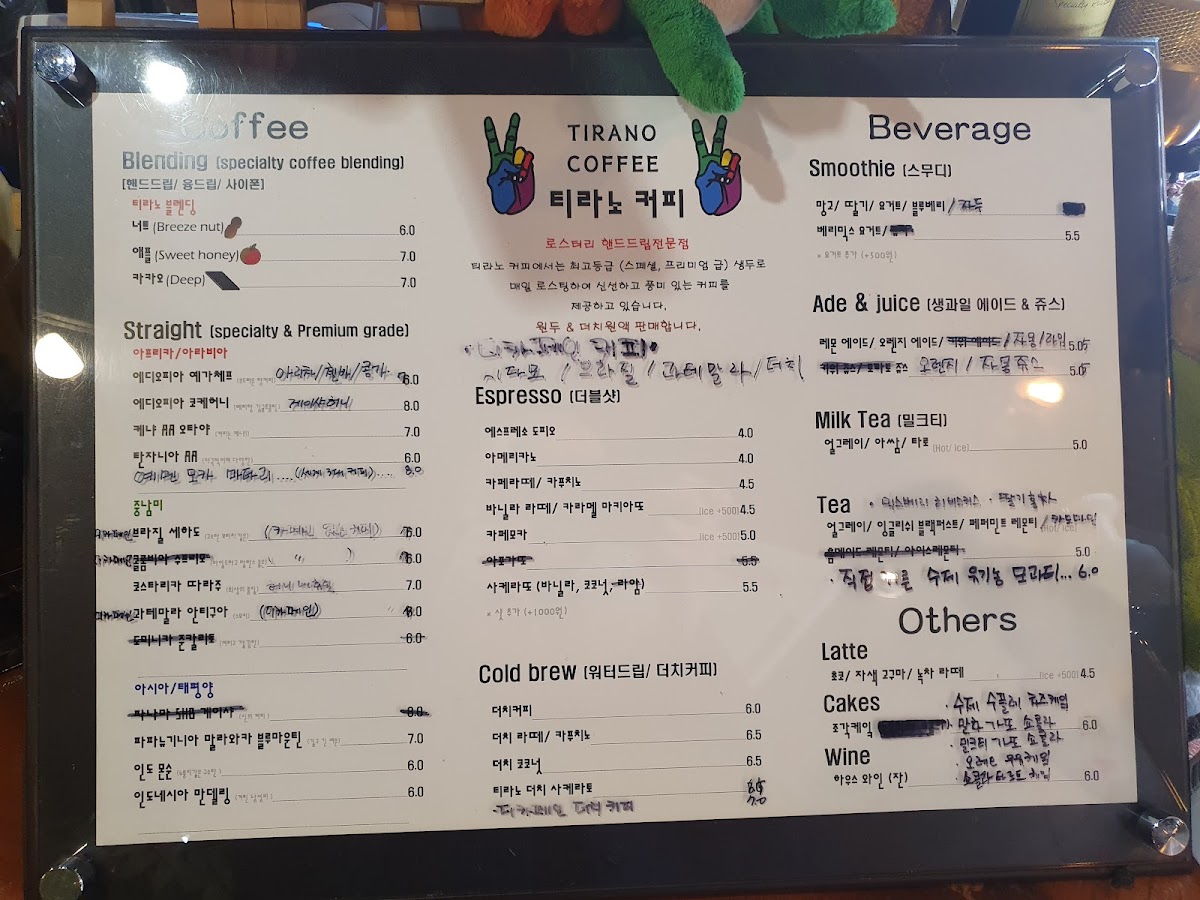 Coffee
Blending (specialty coffee blending)
[핸드드립/ 융드립/ 사이폰]
티라노 블렌딩
너트 (Breeze nut) 6.0
애플 (Sweet honey) 7.0
카카오 (Deep) 7.0
Straight (specialty & Premium grade)
아프리카/아라비아
에디오피아 예가체프 아리차/첼바/콩가 6.0
에디오피아 코케허니 게이샤허니 8.0
케냐 AA 오타야 7.0
탄자니아 AA 6.0
예멘 모카 마타리.... (세계 3대 커피).... 8.0
중남미
디카페인 브라질 세하도 6.0
콜롬비아 수프리모 6.0
코스타리카 따라주 7.0
디카페인 과테말라 안티구아 (디카페인) 6.0
도미니카 준칼리토 6.0
아시아/태평양
파나마 SHB 게이샤 8.0
파파뉴기니아 말라와카 블루마운틴 7.0
인도 몬순 6.0
인도네시아 만델링 6.0
TIRANO
COFFEE
티라노 커피
로스터리 핸드드립전문점
티라노 커피에서는 최고등급 (스페셜, 프리미엄 급) 생두로
매일 로스팅하여 신선하고 풍미 있는 커피를
제공하고 있습니다.
원두 & 더치원액 판매합니다.
디카페인 커피
시다모 / 브라질 / 과테말라 / 더치
Espresso (더블샷)
에스프레소 도피오 4.0
아메리카노 4.0
카페라떼/ 카푸치노 4.5
바닐라 라떼/ 카라멜 마키아또 (ice +500) 4.5
카페모카 (ice +500) 5.0
아포카토 5.5
사케라또 (바닐라, 코코넛, 라얌) 5.5
* 샷 추가 (+1000원)
Cold brew (워터드립/ 더치커피)
더치커피 6.0
더치 라떼/ 카푸치노 6.5
더치 코코넛 6.5
티라노 더치 사케라또 7.0
디카페인 더치 커피
Beverage
Smoothie (스무디)
망고/ 딸기/ 요거트/ 블루베리 / 자두
베리믹스 요거트/ 5.5
* 요거트 추가 (+500원)
Ade & juice (생과일 에이드 & 쥬스)
레몬 에이드/ 오렌지 에이드/ 키위 에이드 / 자몽/라임 5.0
키위 쥬스/ 토마토 쥬스 오렌지 / 자몽 쥬스 5.0
Milk Tea (밀크티)
얼그레이/ 아쌈/ 타로 (Hot/ ice) 5.0
Tea
얼그레이/ 잉글리쉬 블랙퍼스트/ 페퍼민트 레몬티 / 카모마일 (Hot/ ice)
홈메이드 레몬티/ 아이스레몬티 5.0
· 직접 기른 수제 유기농 모과티... 6.0
Others
Latte
초코/ 자색 고구마/ 녹차 라떼 (ice +500) 4.5
Cakes · 수제 수플레 치즈케잌
조각케잌 6.0
· 밀크티 가또 쇼콜라
Wine
하우스 와인 (잔) 6.0